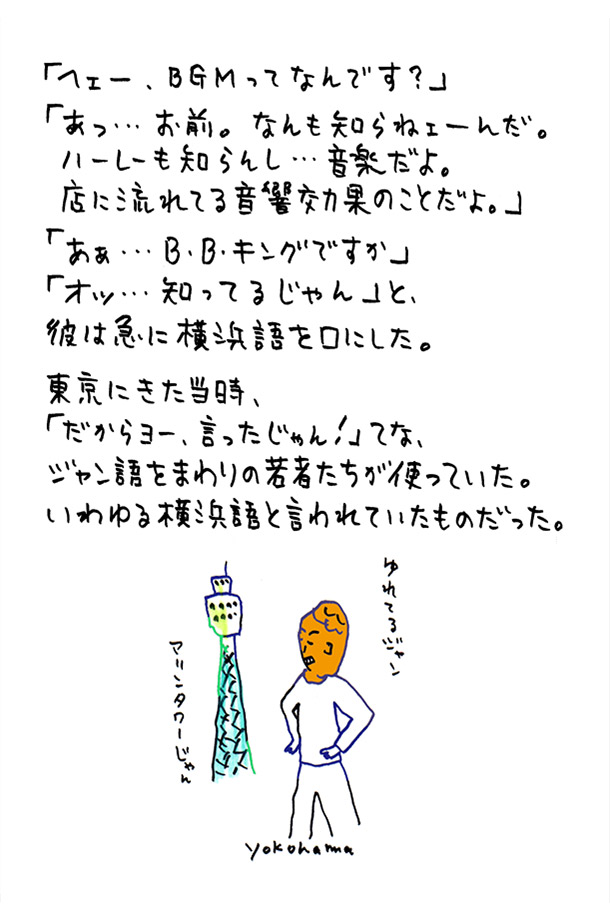 「ヘェー、BGMってなんです？」
「あっ…お前。なんも知らねェーんだ。
ハーレーも知らんし…音楽だよ。
店に流れてる音響効果のことだよ。」
「あぁ…B・B・キングですか」
「オッ…知ってるじゃん」と、
彼は急に横浜語を口にした。
東京にきた当時、
「だからヨー、言ったじゃん！」てな、
ジャン語をまわりの若者たちが使っていた。
いわゆる横浜語と言われていたものだった。
ゆれてるジャン
マリンタワーじゃん
yokohama